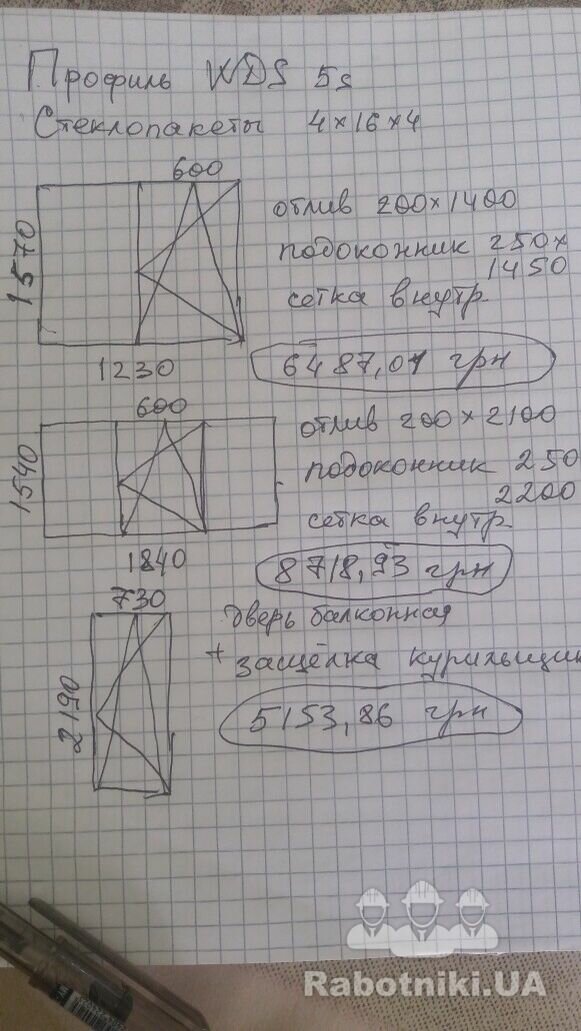 Профиль WDS 5s
Стеклопакеты 4×16×4
600
1570
отлив 200×1400
подоконник 250×
1450
сетка внутр.
1230
6487,01 грн
600
1540
отлив 200×2100
подоконник 250
2200
сетка внутр.
1840
8718,93 грн
730
2190
дверь балконная
+ защёлка курильщик
5153,86 грн
Rabotniki.UA